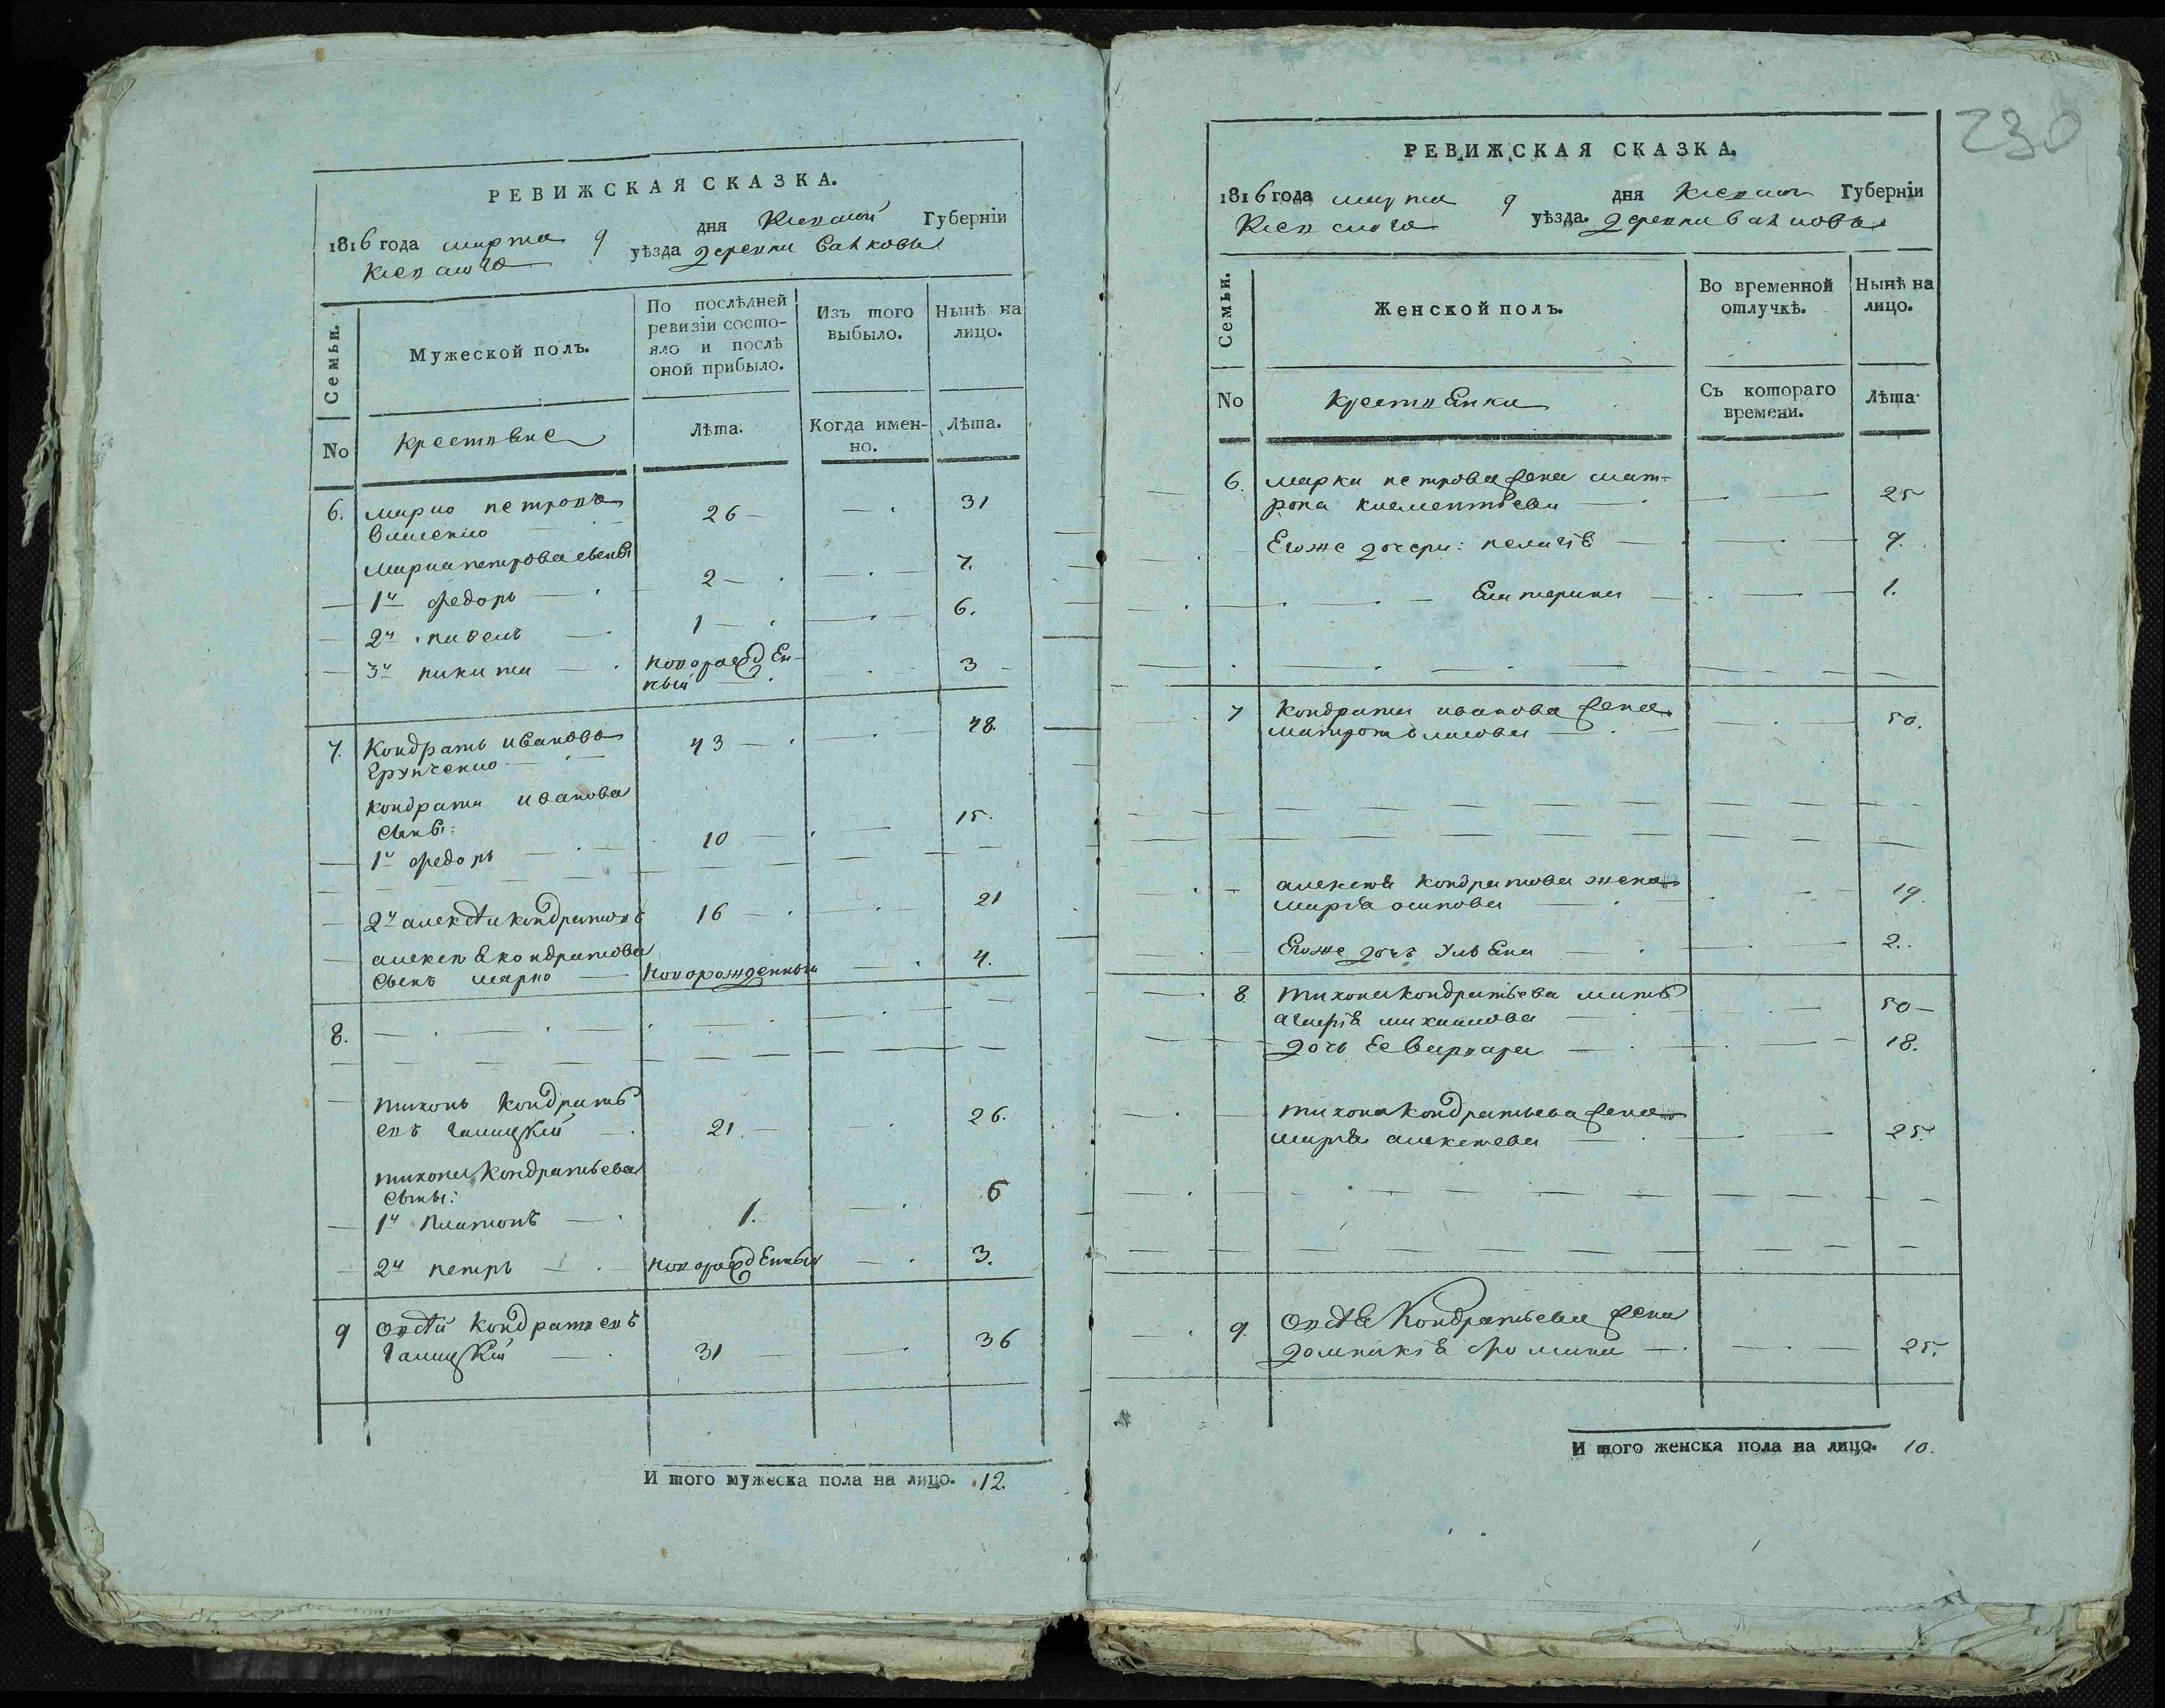 РЕВИЖСКАЯ СКАЗКА.
1816 года марта 9 дня Киевской Губерніи
Киевского уѣзда деревни
Семьи.
Мужеской полъ.
По послѣдней
ревизіи состо-
яло и послѣ
оной прибыло.
Изъ того
выбыло.
Нынѣ на
лицо.
No
крестьяне
Лѣта.
Когда имен-
но.
Лѣта.
6. марко петровъ 26 31
марка петрова сыновья
1й федоръ 2 7.
2й павелъ 1 6.
3й никита новорожден- 3
ный
7. Кондратъ ивановъ 43 48.
кондрата иванова
сыны:
1й федоръ 10 15.
2й алексѣй кондратовъ 16 21
алексѣя кондратова
сынъ марко новорожденный 4.
8.
тихонъ кондрать
евъ галицкій 21. 26.
тихона кондратьева
сыны:
1й платонъ 1. 6
2й петръ новорожденный 3.
9 овсѣй кондратьевъ
галицкій 31 36
И того мужеска пола на лицо. 12.
230
РЕВИЖСКАЯ СКАЗКА.
1816 года марта 9 дня Киевской Губерніи
Киевского уѣзда. деревни
Семьи.
Женской полъ.
Во временной
отлучкѣ.
Нынѣ на
лицо.
No
крестьянки
Съ котораго
времени.
Лѣта
6. марка петрова жена мат-
рона климентьева 25
Егоже дочери: пелагѣя 9.
Екатерина 1.
7 Кондрата иванова жена 50.
алексѣя кондратова жена 19.
марѳа осипова
Егоже дочь ульяна 2.
8 тихона кондратьева мать 50
михайлова
дочь Ее варвара 18.
тихона кондратьева жена
марѳа алексеева 25.
9. овсѣя кондратьева жена
домникія фомина 25.
И того женска пола на лицо. 10.